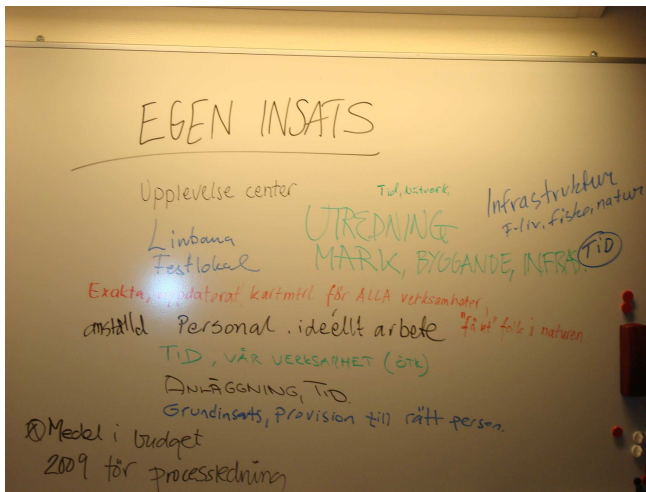 EGEN INSATS
Upplevelse center
Tid, nätverk,
Infrastruktur
F-liv, fiske, natur
UTREDNING
MARK, BYGGANDE, INFRA.
TID
Linbana
Festlokal
Exakta, uppdaterat kartmtrl för ALLA verksamheter,
anställd Personal . ideéllt arbete
"få ut" folk i naturen
TID, VÅR VERKSAMHET (ÖTK)
ANLÄGGNING, TID.
Grundinsats, provision till rätt person.
Medel i budget
2009 för processledning